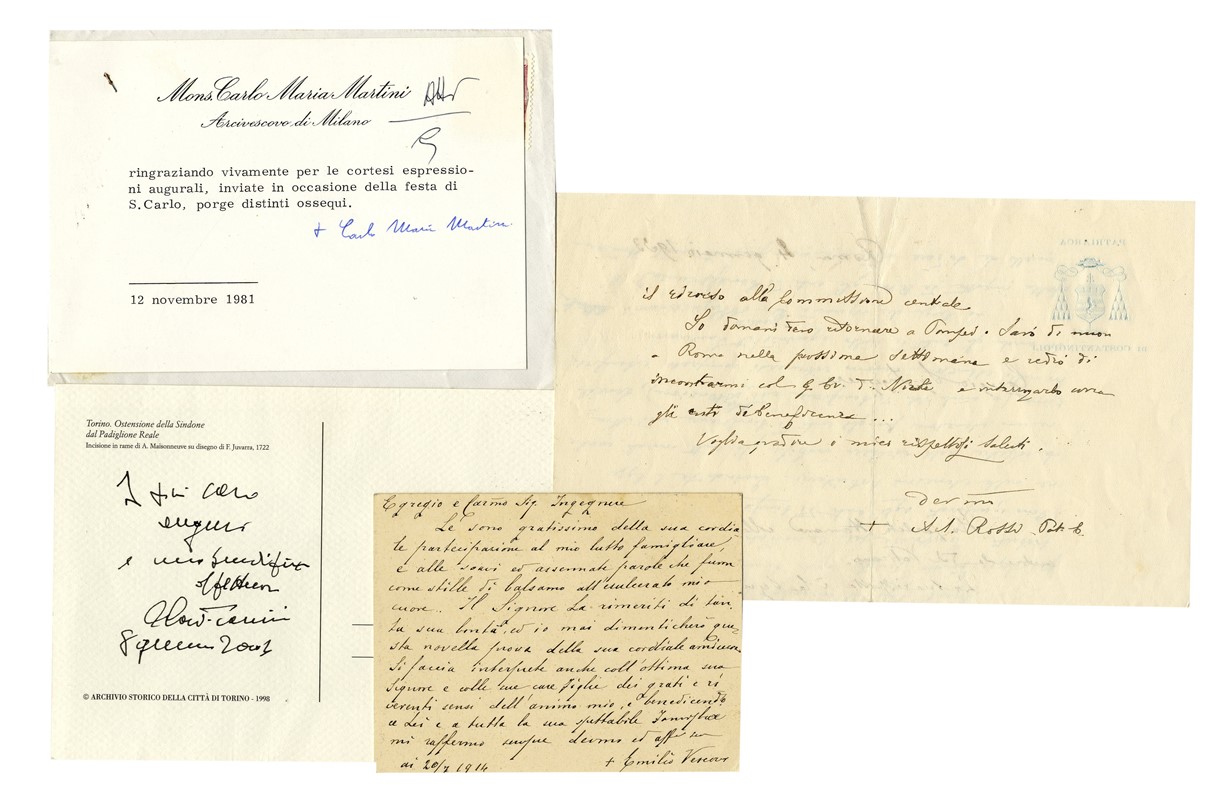 Mons. Carlo Maria Martini
Arcivescovo di Milano
ringraziando vivamente per le cortesi espressio-
ni augurali, inviate in occasione della festa di
S.Carlo, porge distinti ossequi.
+ Carlo Maria Martini
12 novembre 1981
PATRIARCA
DI COSTANTINOPOLI
alla Commissione centrale
Io domani devo ritornare a Pompei. Sarò di nuovo
a Roma nella prossima settimana e vedrò di
incontrarmi col
gli enti di beneficenza ...
Voglia gradire i miei rispettosi saluti.
dev mo
+ A. A. Rossi Pat. C.
Torino. Ostensione della Sindone
dal Padiglione Reale
Incisione in rame di A. Maisonneuve su disegno di F. Juvarra, 1722
I più cari
auguri
e
© ARCHIVIO STORICO DELLA CITTÀ DI TORINO - 1998
Egregio e Carmo Sig. Ingegnere
Le sono gratissimo della sua cordia
le partecipazione al mio lutto famigliare,
e alle soavi ed assennate parole che furon
come stille di balsamo all'esulcerato mio
cuore. Il Signore La rimeriti di tan.
ta sua bontà, ed io mai dimenticherò que
sta novella prova della sua cordiale amicizia
Si faccia interprete anche coll'ottima sua
Signora e colle sue care figlie dei grati e ri
verenti sensi dell'animo mio, e benedicendo
a Lei e a tutta la sua spettabile Famiglia
mi raffermo sempre devmo ed affmo
ai 20/7 1914
+ Emilio Vescovo